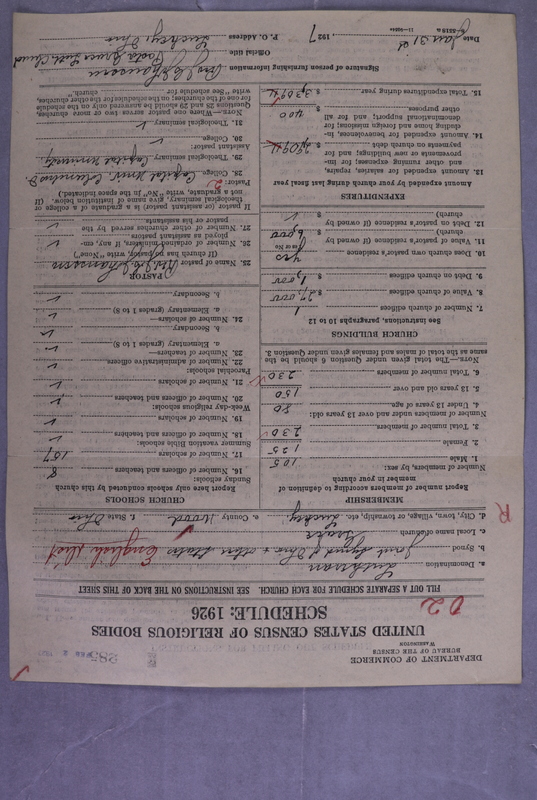 DEPARTMENT OF COMMERCE
BUREAU OF THE CENSUS
WASHINGTON
UNITED STATES CENSUS OF RELIGIOUS BODIES
SCHEDULE: 1926
FILL OUT A SEPARATE SCHEDULE FOR EACH CHURCH. SEE INSTRUCTIONS ON THE BACK OF THIS SHEET
a. Denomination Lutheran
b. Synod Joint Synod of Ohio & other States English Dist
c. Local name of church Grace
d. City, town, village, or township, etc. Luckey e. County Wood f. State Ohio
MEMBERSHIP
Report number of members according to definition of member in your church
Number of members, by sex:
1. Male 105
2. Female 125
3. Total number of members 230
Number of members under and over 13 years old:
4. Under 13 years of age 80
5. 13 years old and over 150
6. Total number of members 230
NOTE.—The total given under Question 6 should be the same as the total of males and females given under Question 3.
CHURCH BUILDINGS
See instructions, paragraphs 10 to 12
7. Number of church edifices 1
8. Value of church edifices $ 27,000
9. Debt on church edifices $ 1,000
10. Does church own pastor's residence yes
(Yes or No)
11. Value of pastor's residence (if owned by church) $ 6,000
12. Debt on pastor's residence (if owned by church) $
EXPENDITURES
Amount expended by your church during last fiscal year
13. Amount expended for salaries, repairs, and other running expenses; for improvements or new buildings; and for payments on church debt
14. Amount expended for benevolences, including home and foreign missions; for denominational support; and for all other purposes $ 400
15. Total expenditures during year
CHURCH SCHOOLS
Report here only schools conducted by this church
Sunday schools:
16. Number of officers and teachers 8
17. Number of scholars 107
Summer vacation Bible schools:
18. Number of officers and teachers
19. Number of scholars
Week-day religious schools:
20. Number of officers and teachers
21. Number of scholars
Parochial schools:
22. Number of administrative officers
23. Number of teachers—
a. Elementary (grades 1 to 8)
b. Secondary
24. Number of scholars—
a. Elementary (grades 1 to 8)
b. Secondary
PASTOR
25. Name of pastor
(If church has no pastor, write "None")
26. Number of ordained ministers, if any, employed as assistant pastors
27. Number of other churches served by the pastor or his assistants
If pastor or assistant pastor is a graduate of a college or theological seminary, give name of institution below. (If not a graduate, write "No" in the space indicated.)
Pastor:
28. College Capital Univ. Columbus O.
29. Theological seminary Capital University
Assistant pastor:
30. College
31. Theological seminary
NOTE.—Where one pastor serves two or more churches, Questions 28 and 29 should be answered only on the schedule for one of the churches; on the schedules for the other churches, write "See schedule for church."
Signature of person furnishing information
Official title Pastor Grace Luth. Church
P. O. Address Luckey, Ohio
Date Jan 31st, 1927